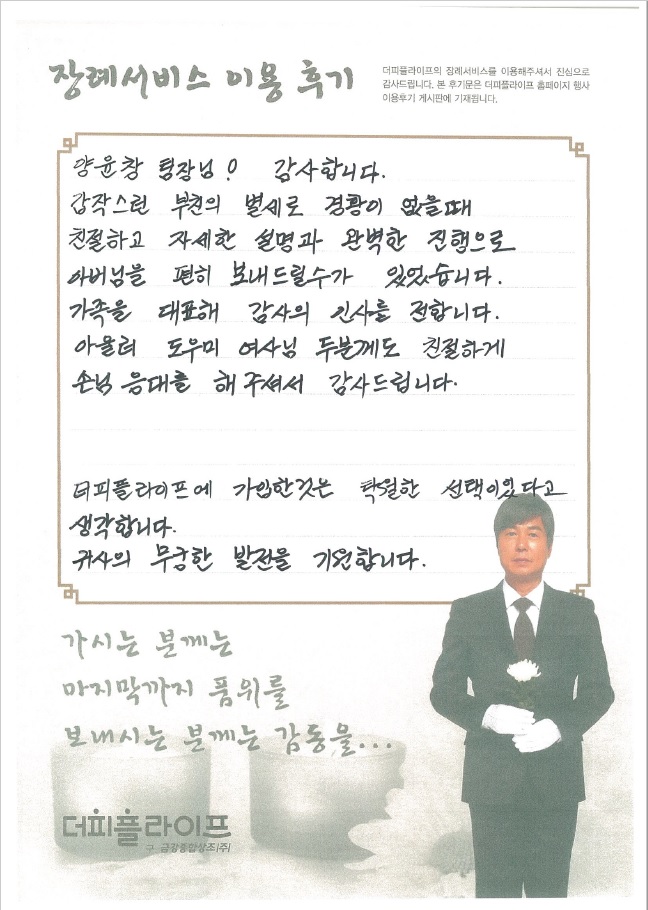 장례서비스 이용 후기
더피플라이프의 장례서비스를 이용해주셔서 진심으로
감사드립니다. 본 후기문은 더피플라이프 홈페이지 행사
이용후기 게시판에 기재됩니다.
양윤창 팀장님! 감사합니다.
갑작스런 부친의 별세로 경황이 없을때
친절하고 자세한 설명과 완벽한 진행으로
아버님을 편히 보내드릴수가 있었습니다.
가족을 대표해 감사의 인사를 전합니다.
아울러 도우미 여사님 두분께도 친절하게
손님 응대를 해주셔서 감사드립니다.
더피플라이프에 가입한것은 탁월한 선택이었다고
생각합니다.
귀사의 무궁한 발전을 기원합니다.
가시는 분께는
마지막까지 품위를
보내시는 분께는 감동을...
더피플라이프
구 금강종합상조(주)